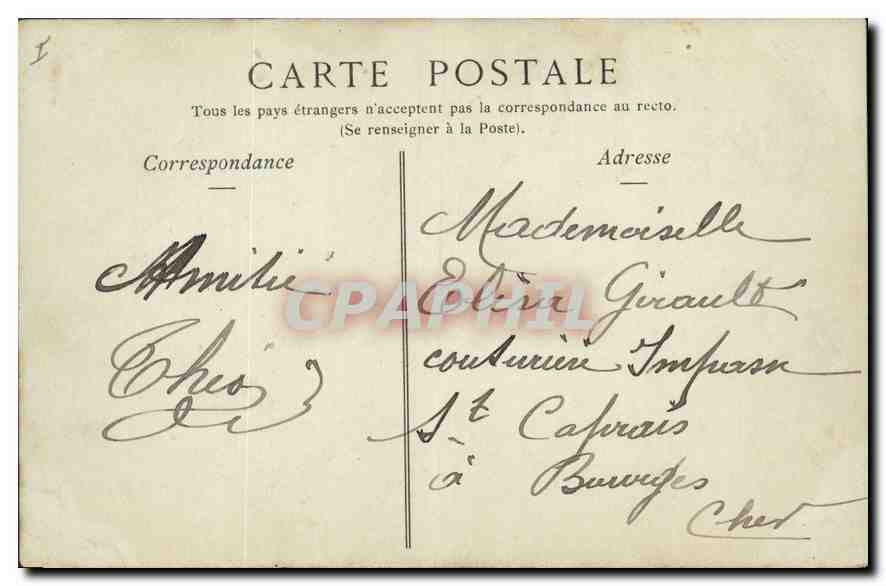 I
CARTE POSTALE
Tous les pays étrangers n'acceptent pas la correspondance au recto.
(Se renseigner à la Poste).
Correspondance
Amitié
Théo
Adresse
Mademoiselle
Elisa Girault
couturière Impasse
St Caprais
à Bourges
Cher
CPAPHIL